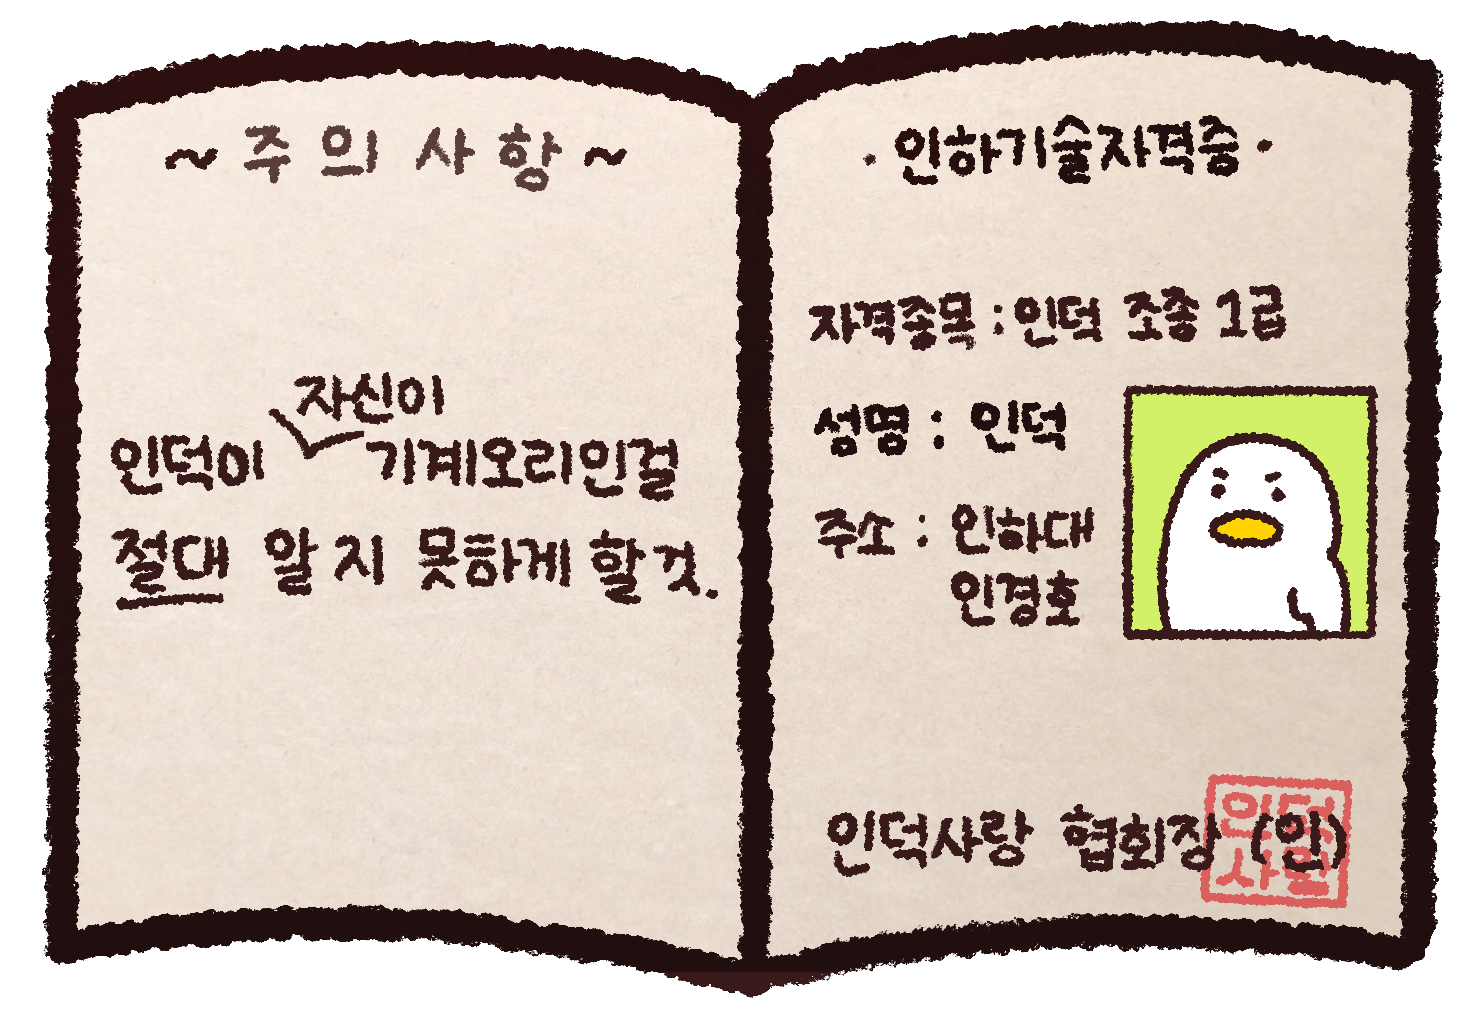 ~주의사항~
인덕이 자신이 기계오리인걸
절대 알지 못하게 할것.
·인하기술자격증·
자격종목 : 인덕 조종 1급
성명 : 인덕
주소 : 인하대
인경호
인덕사랑 협회장 (인)
인덕
사랑